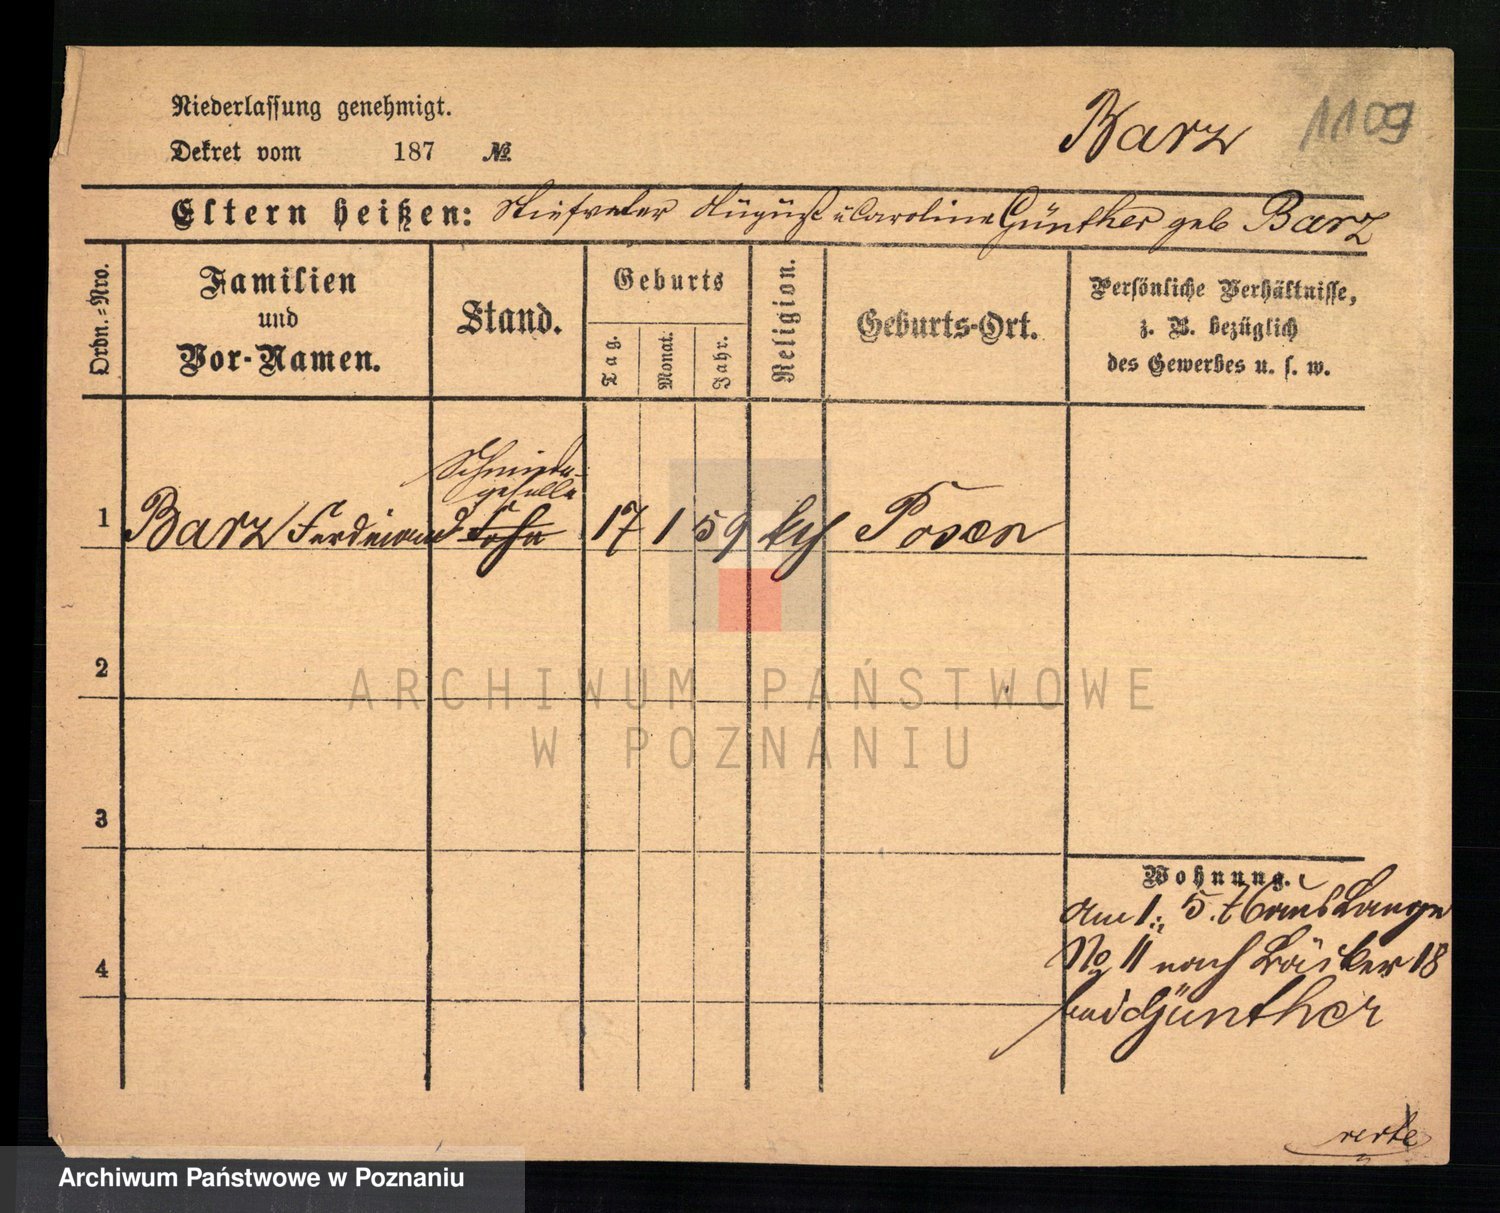 Niederlassung genehmigt.
Dekret vom 187 №
Barz
1109
Eltern heißen: Stiefvater August u Caroline Günther geb Barz
Ordn.-Nro.
Familien
und
Vor-Namen.
Stand.
Geburts
Tag.
Monat.
Jahr.
Religion.
Geburts-Ort.
Persönliche Verhältnisse,
z. B. bezüglich
des Gewerbes u. s. w.
Schmiede-
geselle
1 Barz Ferdinand Sohn 17 1 59 Posen
2
ARCHIWUM PAŃSTWOWE
W POZNANIU
3
Wohnung.
Am 1. 5. Lange
No 11 nach Bäcker 18
bei Günther
4
verte
Archiwum Państwowe w Poznaniu